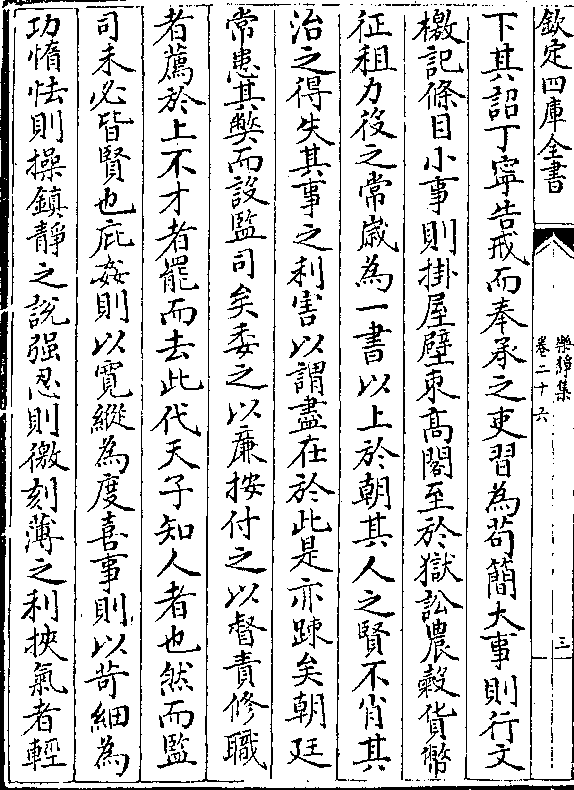 欽定四庫全書
樂靜集
卷二十六
三
下其詔丁寧告戒而奉承之吏習為苟簡大事則行文
檄記條目小事則掛屋壁束高閣至於獄訟農穀貨幣
征租力役之常歲為一書以上於朝其人之賢不肖其
治之得失其事之利害以謂盡在於此是亦踈矣朝廷
常患其弊而設監司矣委之以廉按付之以督責修職
者薦於上不才者罷而去此代天子知人者也然而監
司未必皆賢也庇姦則以寛縱為度喜事則以苛細為
功惰怯則操鎮靜之說强忍則徼刻薄之利挾氣者輕